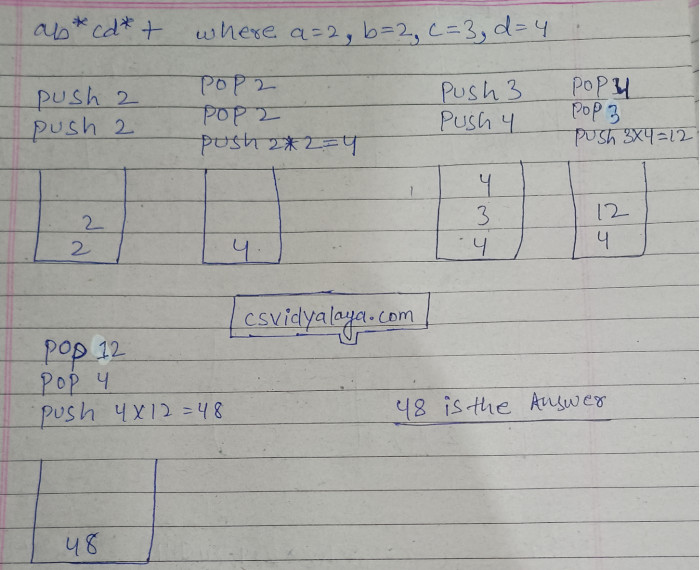 ab*cd*+ where a=2, b=2, c=3, d=4
push 2
push 2
POP 2
POP 2
push 2*2=4
2
2
4
Push 3
Push 4
POP 4
POP 3
Push 3x4=12
4
3
4
12
4
csvidyalaya.com
POP 12
POP 4
push 4x12=48
48 is the Answer
48